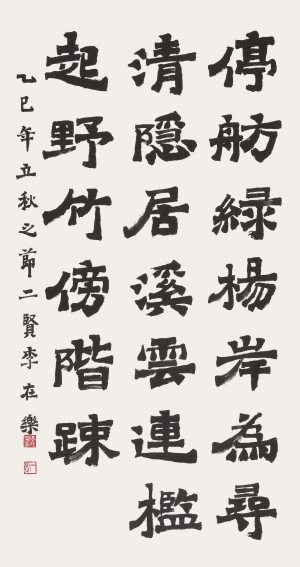 停舫綠楊岸為尋
清隱居溪雲連檻
起野竹傍階踈
乙巳年五秋之節二賢李在樂